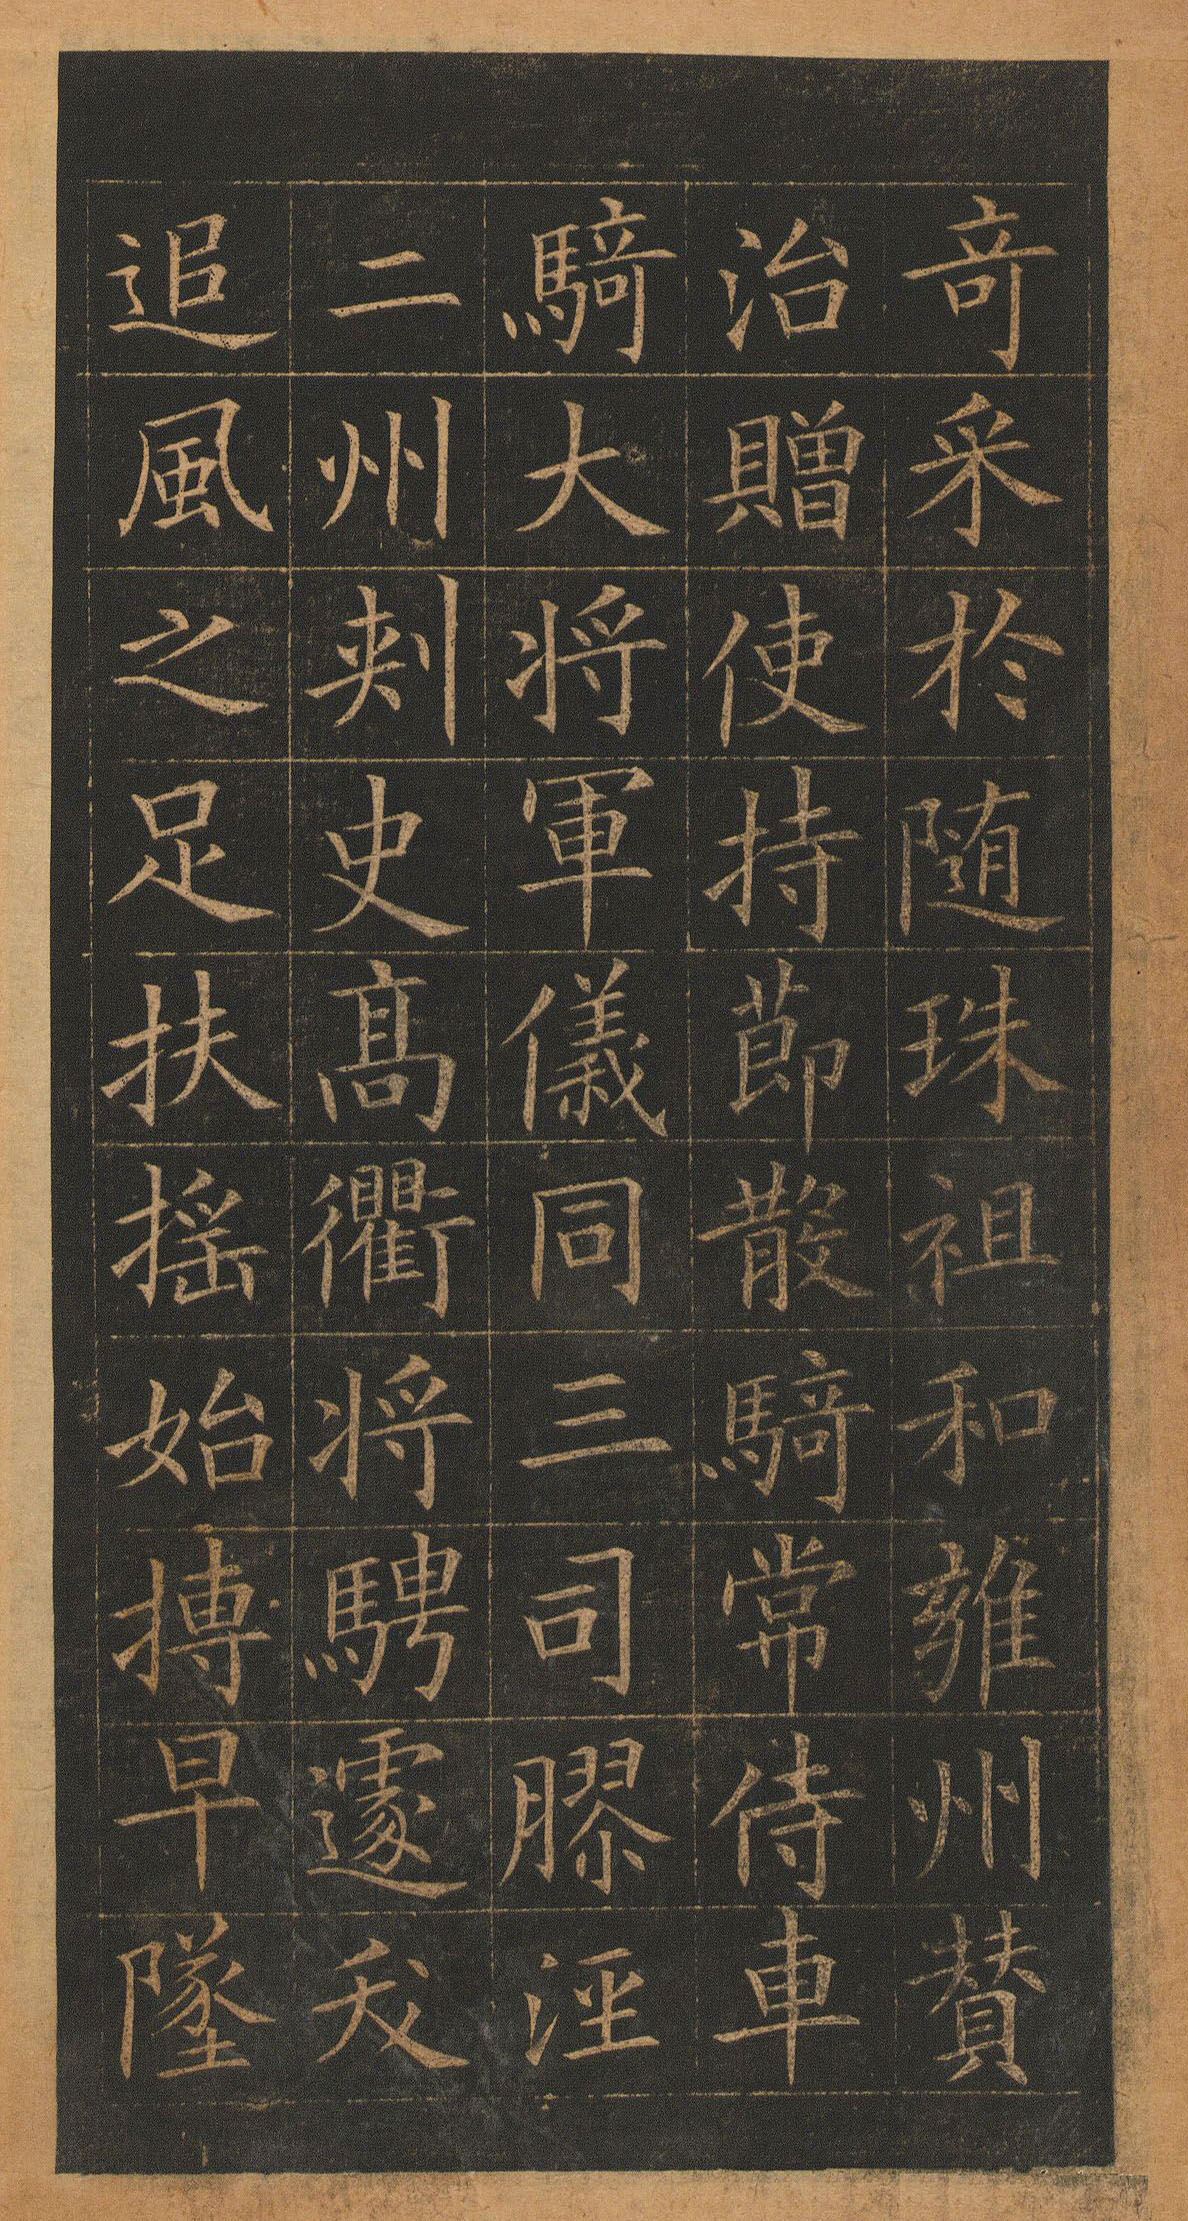 奇采於随珠祖和雍州賛
治贈使持節散騎常侍車
騎大将軍儀同三司膠涇
二州刾史髙衢将騁遽夭
追風之足扶揺始搏早墜